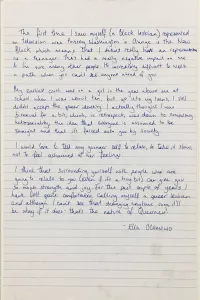 The first time I saw myself (a Black lesbian) represented
on television was Poussey Washington in Orange is the New
Black which means that I didn't really have any representation
as a teenager. That had a really negative impact on me
in the way many other people. It's incredibly difficult to walk
a path when you can't see anyone ahead of you.

My earliest crush was on a girl in the year above me at
school when I was about ten, but up into my teens, I still
didn't accept the queer identity. I actually thought I was
bisexual for a bit, which, in retrospect, was down to compulsory
heterosexuality: the idea that everyone is assumed to be
straight and that it's forced onto you by society.

I would love to tell my younger self to relax, to take it slow
not to feel ashamed of her feelings.

I think that surrounding yourself with people who are
going to relate to you (even if it's a tiny bit) can give you
so much strength and joy. For the past couple of years I
have felt quite comfortable calling myself a queer lesbian
and although I can't see that changing anytime soon, it'll
be okay if it does - that's the nature of Queerness!

- Ella